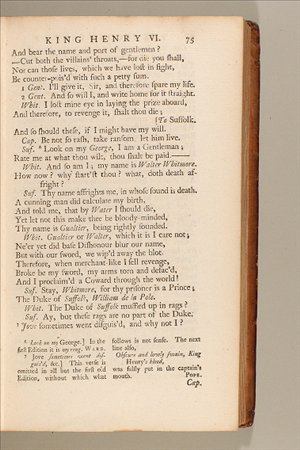 KING HENRY VI. 75
And bear the name and port of gentlemen?
—Cut both the villains' throats,—for die you ſhall,
Nor can thoſe lives, which we have loſt in fight,
Be counter-pois'd with ſuch a petty ſum.
1 Gent. I'll give it, Sir, and therefore ſpare my life.
2 Gent. And ſo will I, and write home for it ſtraight.
Whit. I loſt mine eye in laying the prize aboard,
And therefore, to revenge it, ſhalt thou die;
[To Suffolk.
And ſo ſhould theſe, if I might have my will.
Cap. Be not ſo raſh, take ranſom let him live.
Suf. ⁶ Look on my George, I am a Gentleman;
Rate me at what thou wilt, thou ſhalt be paid.—
Whit. And ſo am I; my name is Walter Whitmore.
How now? why ſtart'ſt thou? what, doth death af-
fright?
Suf. Thy name affrights me, in whoſe ſound is death.
A cunning man did calculate my birth,
And told me, that by Water I ſhould die,
Yet let not this make thee be bloody-minded,
Thy name is Gualtier, being rightly ſounded.
Whit. Gualtier or Walter, which it is I care not;
Ne'er yet did baſe Diſhonour blur our name,
But with our ſword, we wip'd away the blot.
Therefore, when merchant-like I ſell revenge,
Broke be my ſword, my arms torn and defac'd,
And I proclaim'd a Coward through the world!
Suf. Stay, Whitmore, for thy priſoner is a Prince;
The Duke of Suffolk, William de la Pole.
Whit. The Duke of Suffolk muffled up in rags?
Suf. Ay, but theſe rags are no part of the Duke.
⁷ Jove ſometimes went diſguis'd, and why not I?
⁶ Look on my George.] In the
firſt Edition it is my ring. WARB.
⁷ Jove ſometimes went diſ-
guis'd, &c.] This verſe is
omitted in all but the firſt old
Edition, without which what
follows is not ſenſe. The next
line alſo,
Obſcure and lowly ſwain, King
Henry's blood,
was falſly put in the captain's
mouth. POPE.
Cap.